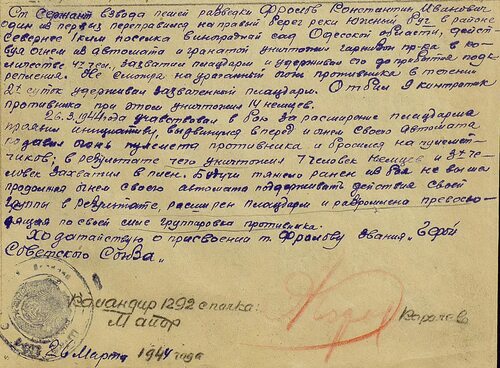 Ст Сержант взвода пешей разведки Фролов Константин Иванович
один из первых переправился на правый берег реки Южный Буг в районе
Севернее 1 км поселка Виноградный сад Одесской области, дейст-
вуя огнем из автомата и гранатой уничтожил гарнизон пр-ка в ко-
личестве 42 чел, захватил плацдарм и удерживал его до прибытия подк-
репления. Не смотря на ураганный огонь противника в течении
2х суток удерживал захваченной плацдарм. Отбил 9 контратак
противника при этом уничтожил 14 немцев.
26.3.1944 года участвовал в бою за расширение плацдарма
проявил инициативу, выдвинулся вперед и огнем своего автомата
подавил огонь пулемета противника и бросился на пулемет-
чиков; в результате чего уничтожил 7 человек немцев и 3х че-
ловек захватил в плен. Будучи тяжело ранен из боя не вышел
продолжал огнем своего автомата поддерживать действия своей
группы в результате, расширен плацдарм и разгромлена превосхо-
дящая по своей силе группировка противника.
Ходатайствую о присвоении т. Фролову звания „Герой
Советского Союза"
Командир 1292 с полка:
Майор
Карачаев
26 Марта 1944 года